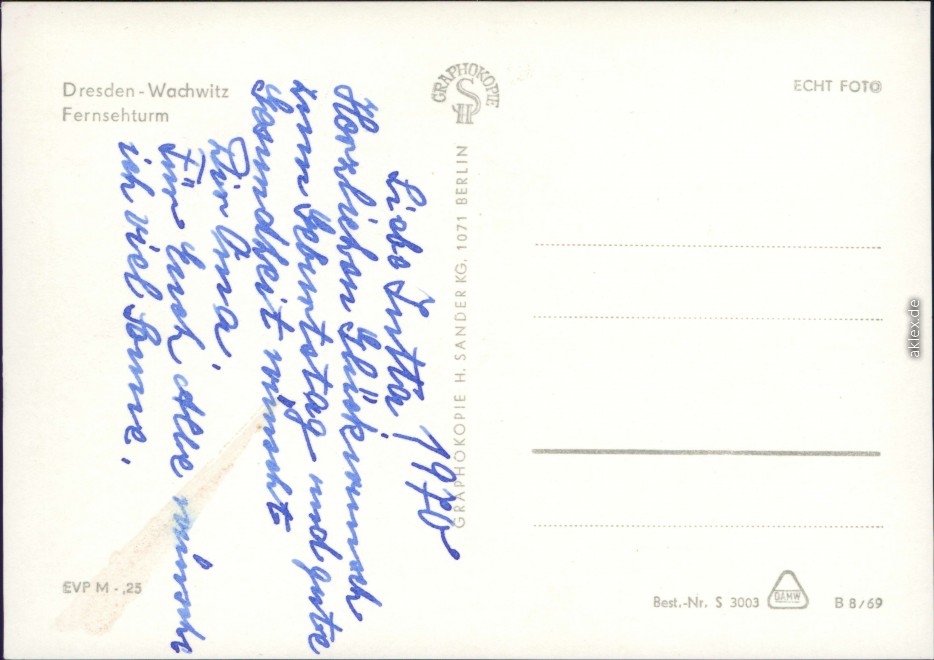 Dresden-Wachwitz
Fernsehturm
GRAPHOKOPIE
H S
ECHT FOTO
GRAPHOKOPIE H. SANDER KG, 1071 BERLIN
1970
Liebe Jutta!
Herzlichen Glückwunsch
zum Geburtstag und gute
Gesundheit wünscht
Dir Oma.
Für Euch Alle wünsche
ich viel Sonne.
EVP M -,25
Best.-Nr. S 3003
DAMW
B 8/69
aklex.de